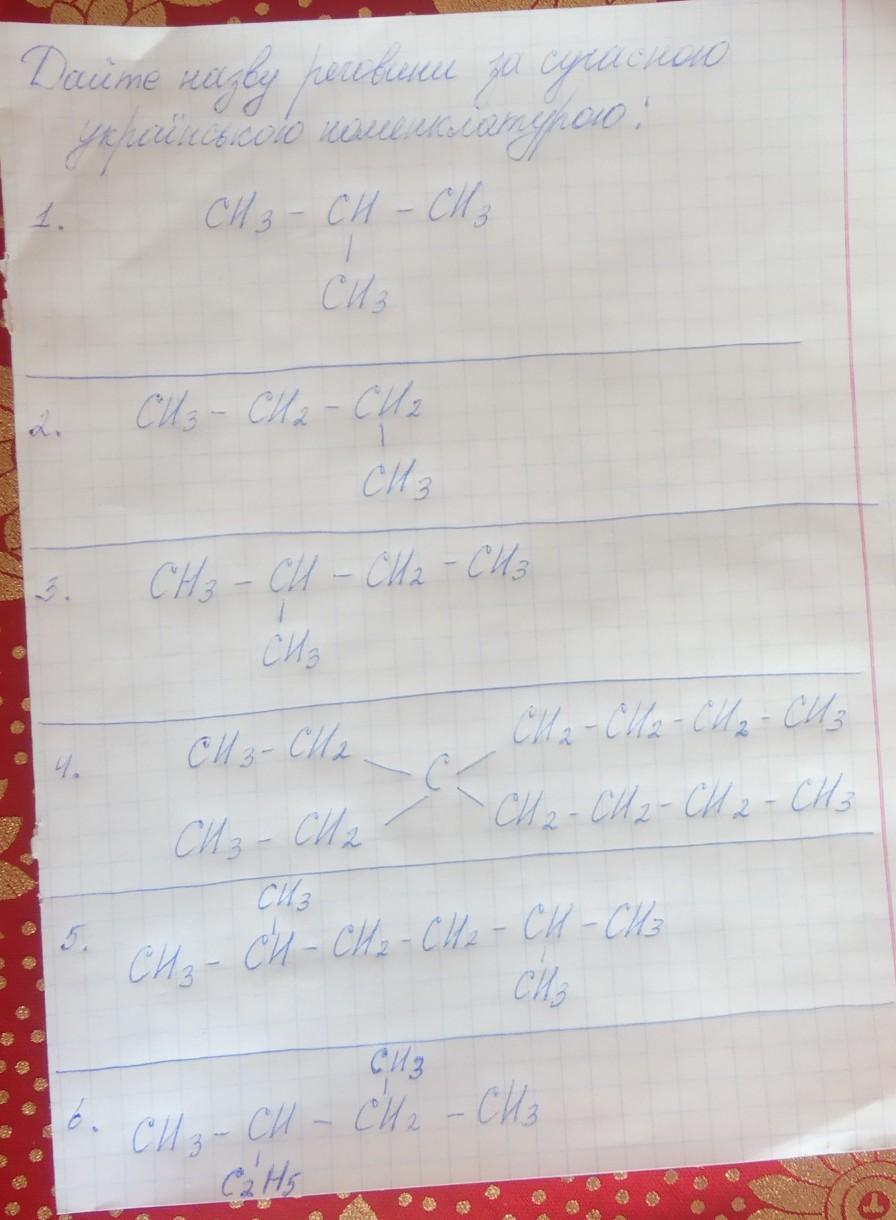 Дайте назву речовини за сучасною
українською номенклатурою:
1. CH3 - CH - CH3
|
CH3
2. CH3 - CH2 - CH2
|
CH3
3. CH3 - CH - CH2 - CH3
|
CH3
CH3 - CH2 CH2 - CH2 - CH2 - CH3
4. C
CH3 - CH2 CH2 - CH2 - CH2 - CH3
CH3
5. CH3 - CH - CH2 - CH2 - CH - CH3
CH3
CH3
6. CH3 - CH - CH2 - CH3
C2H5